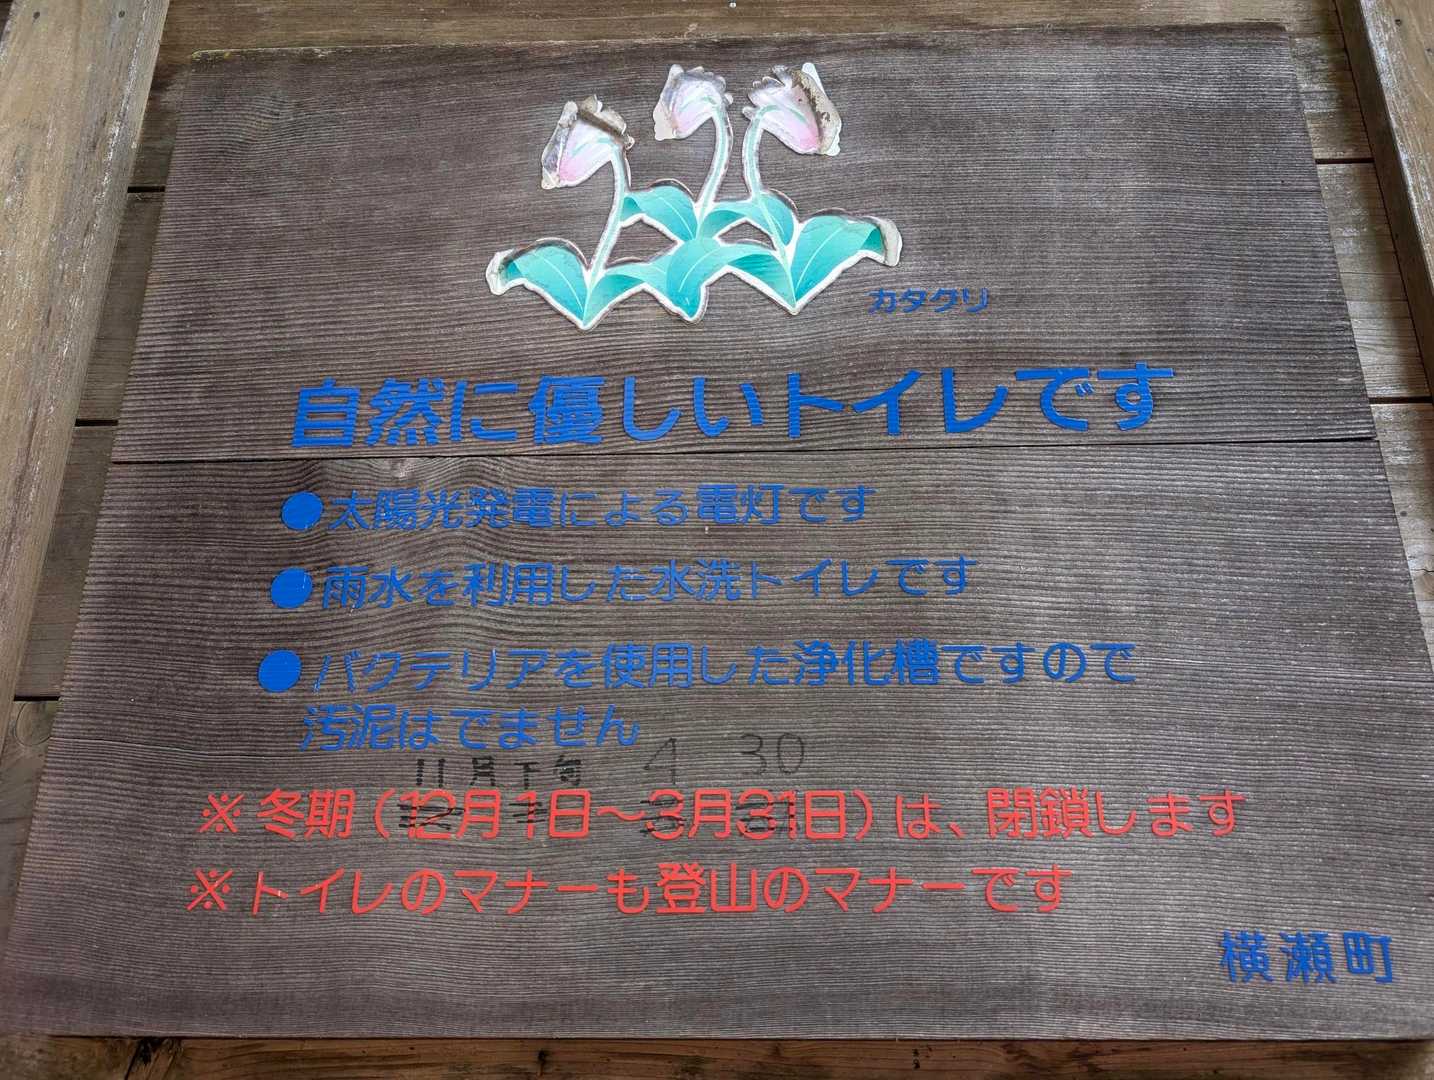 カタクリ
自然に優しいトイレです
●太陽光発電による電灯です
●雨水を利用した水洗トイレです
●バクテリアを使用した浄化槽ですので
汚泥はでません
11月下旬 4 30
※冬期(12月1日～3月31日)は、閉鎖します
※トイレのマナーも登山のマナーです
横瀬町